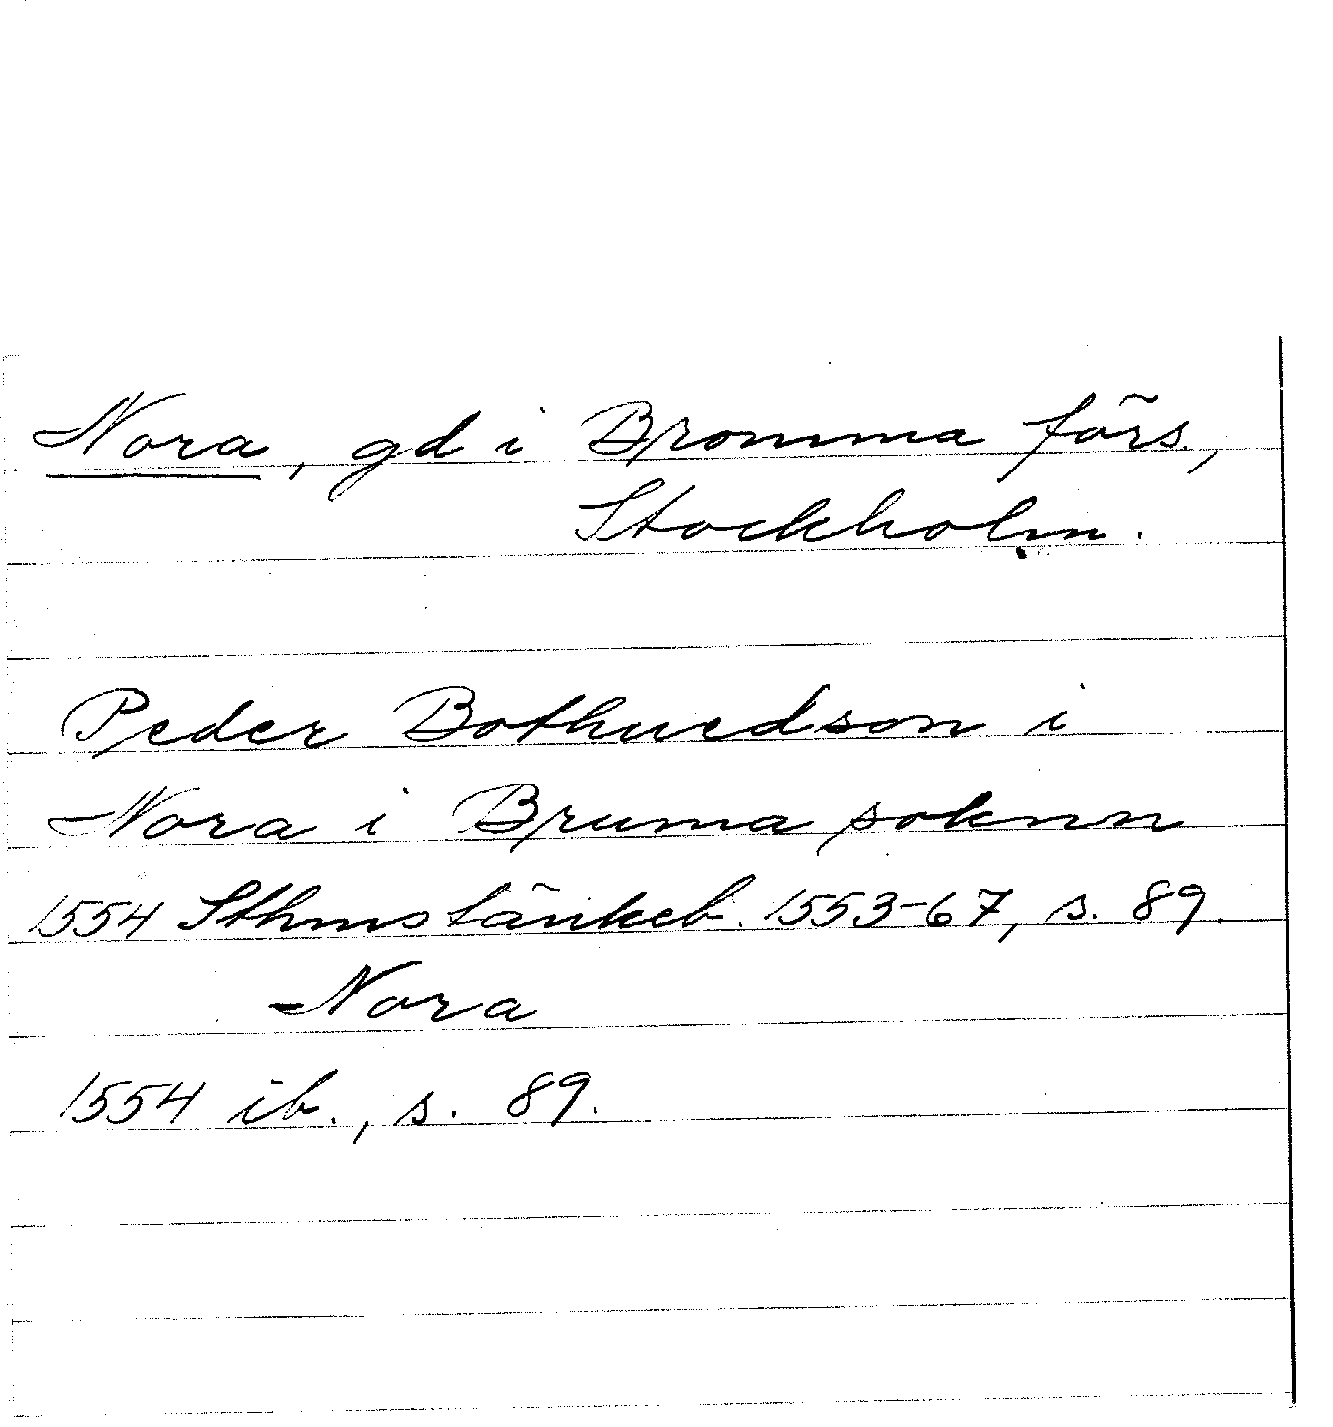 Nora, gd i Bromma förs.,
Stockholm.
Peder Bothuedson i
Nora i Bruma soknn
1554 Sthms tänkeb. 1553-67, s. 89.
Nora
1554 ib., s. 89.